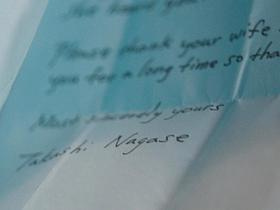 Please thank your wife
you for a long time so tha
Most sincerely yours
Takashi Nagase